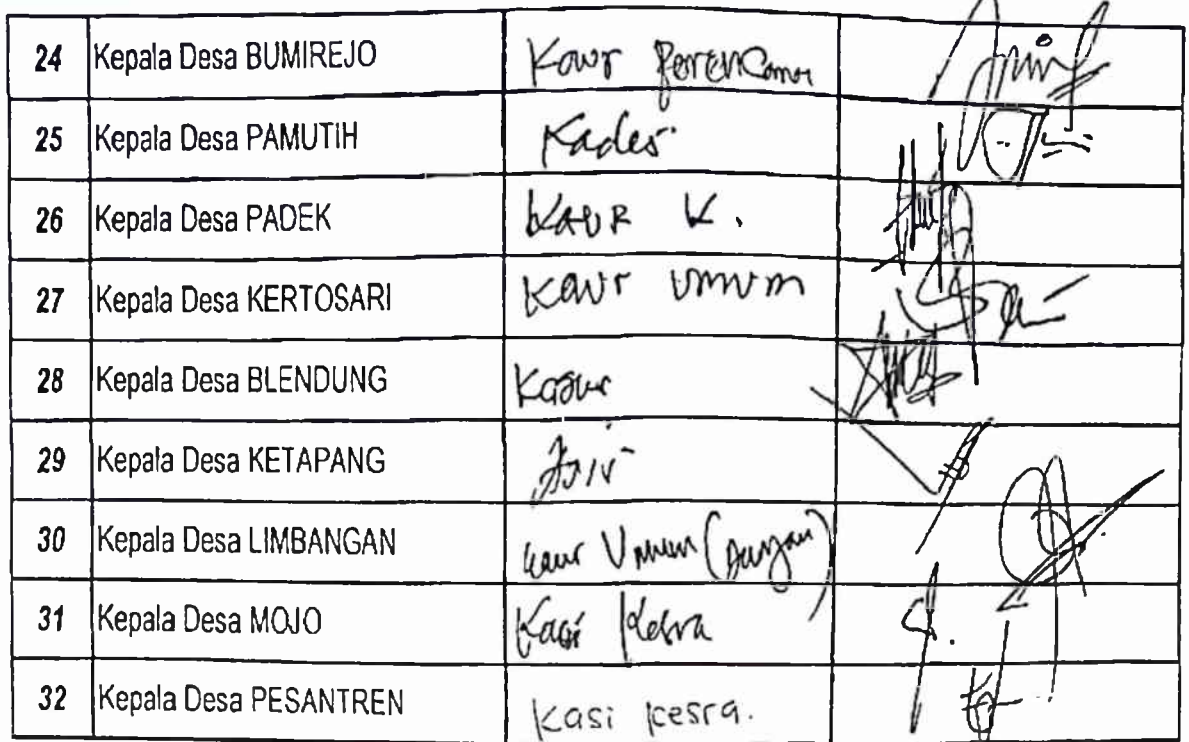 24 Kepala Desa BUMIREJO Kaur Perencana
25 Kepala Desa PAMUTIH Kades
26 Kepala Desa PADEK KAUR K.
27 Kepala Desa KERTOSARI Kaur Umum
28 Kepala Desa BLENDUNG
29 Kepala Desa KETAPANG
30 Kepala Desa LIMBANGAN kaur Umum
31 Kepala Desa MOJO Kasi Kesra
32 Kepala Desa PESANTREN Kasi kesra.